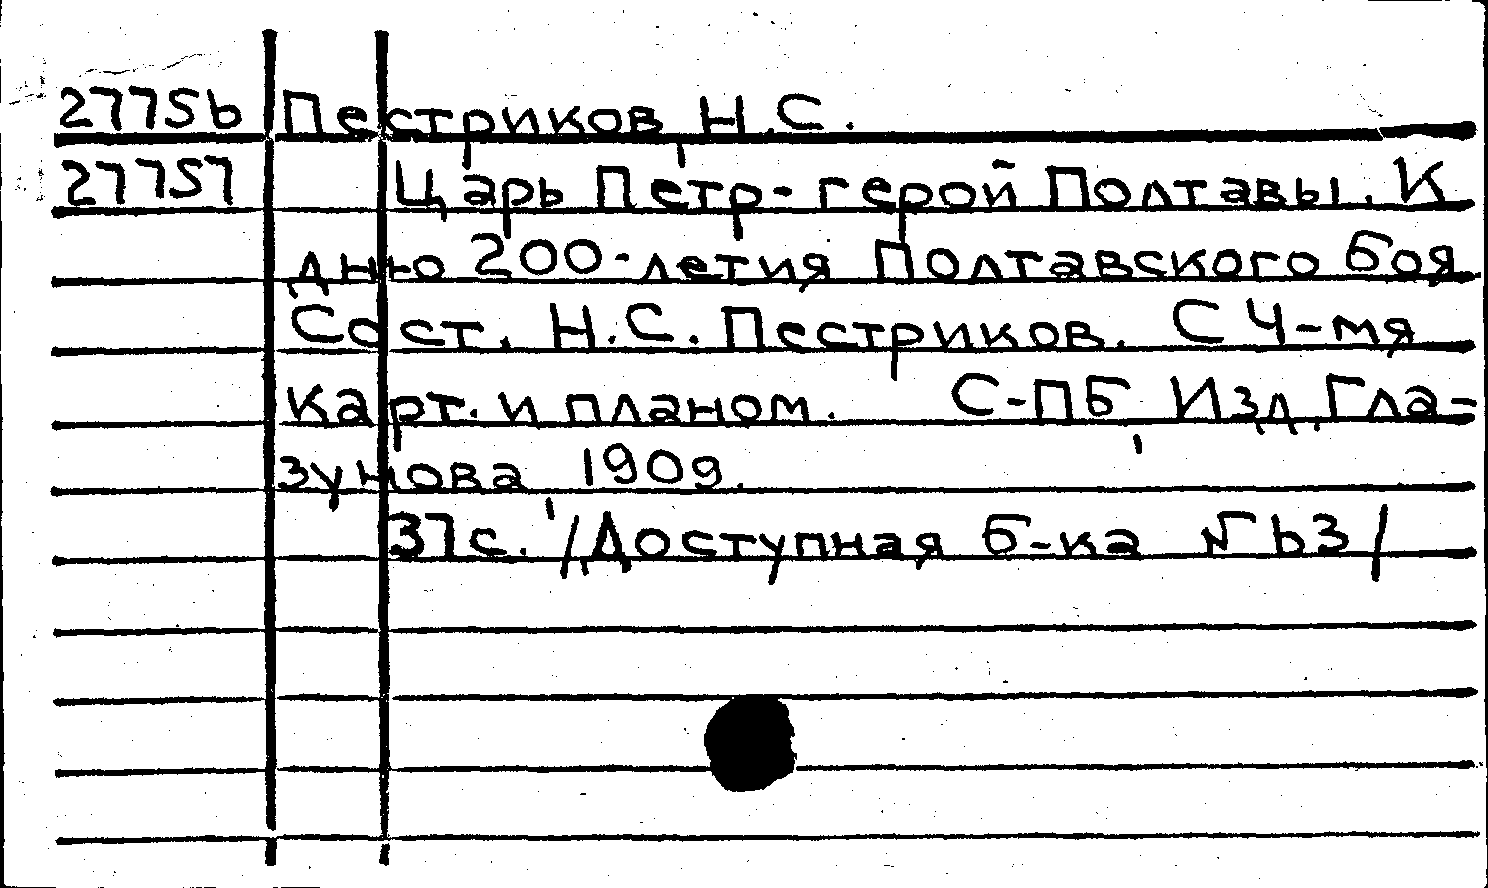 27756 Пестриков, Н.С.
27757 Царь Петр-герой Полтавы. К
дню 200-летия Полтавского боя
Сост. Н.С. Пестриков. С 4-мя
карт. и планом. С-ПБ, Изд. Гла-
зунова, 1909.
37 с. /Доступная б-ка № 63/